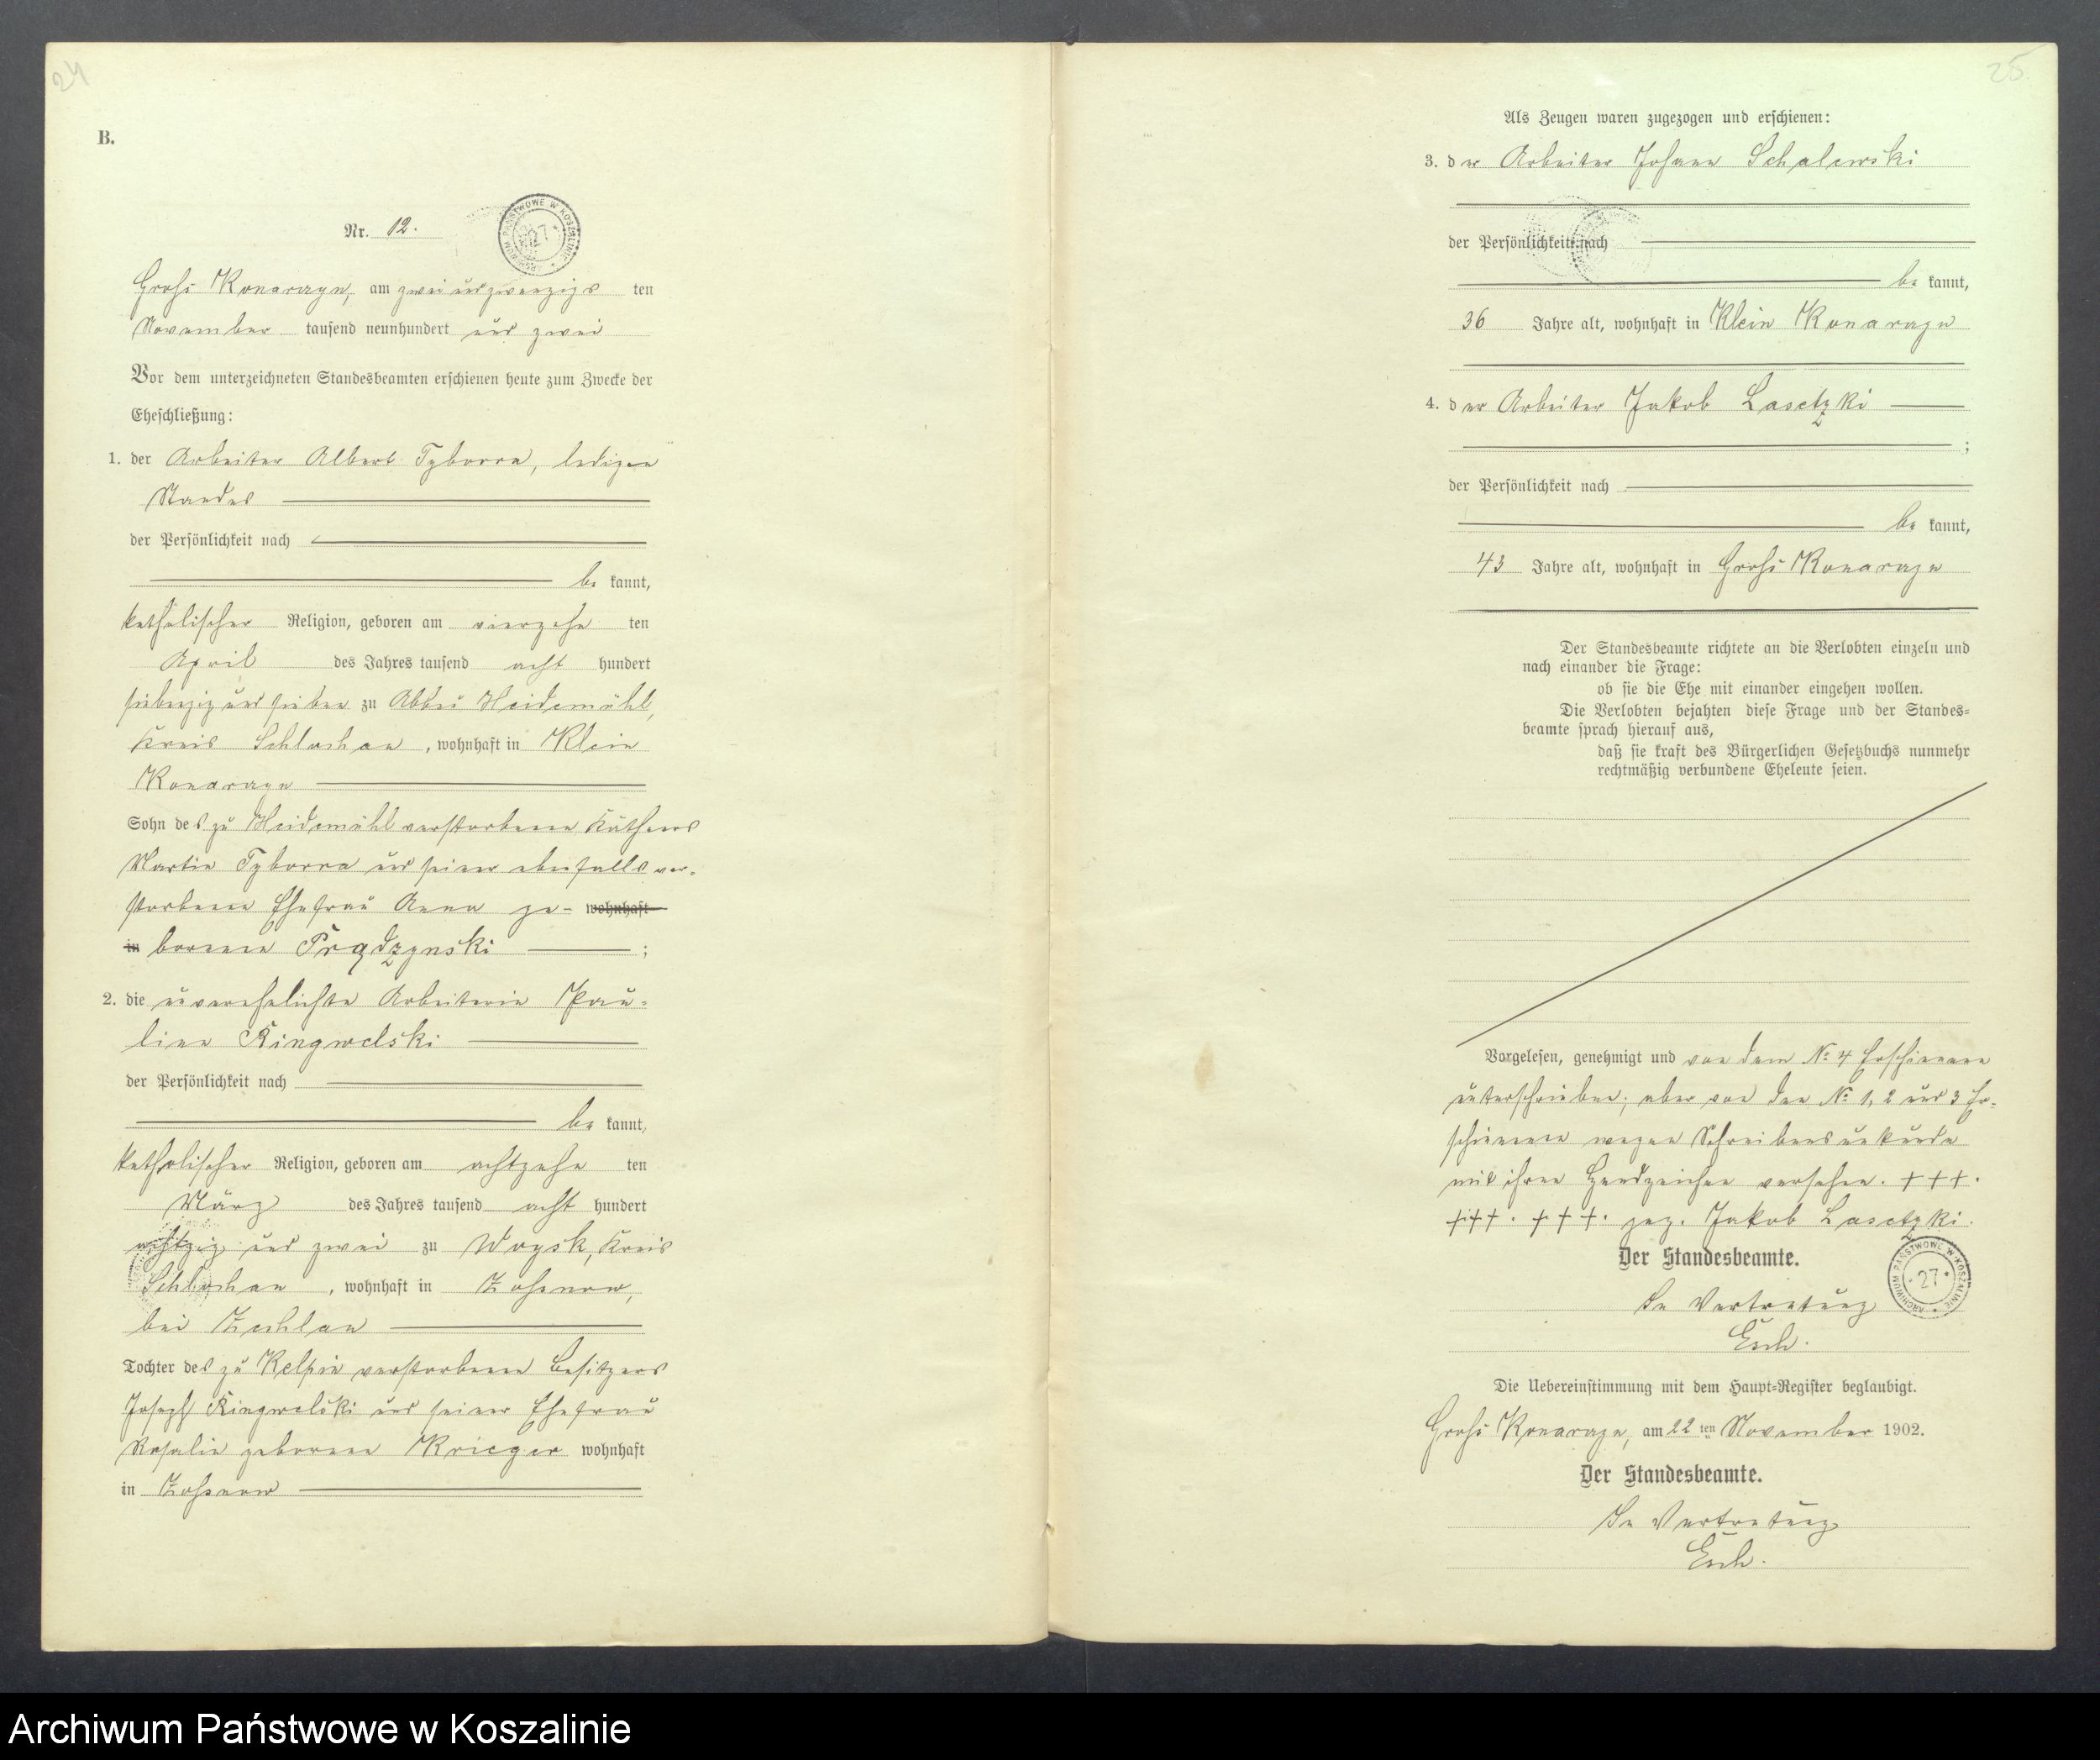 24
B.
Nr. 12.
ARCHIWUM PAŃSTWOWE W KOSZALINIE * 27 *
Groß Konarczyn, am zweiundzwanzigs ten
November tausend neunhundert und zwei
Vor dem unterzeichneten Standesbeamten erschienen heute zum Zwecke der
Eheschließung:
1. der Arbeiter Albert Tyborra, ledigen
Standes
der Persönlichkeit nach
be kannt,
katholischer Religion, geboren am vierzehn ten
April des Jahres tausend acht hundert
siebenzig und sieben zu Abbau Heidemühl,
Kreis Schlochau, wohnhaft in Klein
Konarczyn
Sohn des zu Heidemühl verstorbenen Käthners
Martin Tyborra und seiner ebenfalls ver-
storbenen Ehefrau Anna ge- wohnhaft
in borenen Prądzynski ;
2. die unverehelichte Arbeiterin Pau-
line Kingwelski
der Persönlichkeit nach
be kannt,
katholischer Religion, geboren am achtzehn ten
März des Jahres tausend acht hundert
achtzig und zwei zu Woysk, Kreis
Schlochau, wohnhaft in Zoßnow,
bei Zechlau
Tochter des zu Kelpin verstorbenen Besitzers
Joseph Kingwelski und seiner Ehefrau
Rosalie geborenen Krieger wohnhaft
in Zoßnow
25
Als Zeugen waren zugezogen und erschienen:
3. der Arbeiter Johann Schalewski
der Persönlichkeit nach
be kannt,
36 Jahre alt, wohnhaft in Klein Konarczyn
4. der Arbeiter Jakob Lasetzki
;
der Persönlichkeit nach
be kannt,
43 Jahre alt, wohnhaft in Groß Konarczyn
Der Standesbeamte richtete an die Verlobten einzeln und
nach einander die Frage:
ob sie die Ehe mit einander eingehen wollen.
Die Verlobten bejahten diese Frage und der Standes-
beamte sprach hierauf aus,
daß sie kraft des Bürgerlichen Gesetzbuchs nunmehr
rechtmäßig verbundene Eheleute seien.
Vorgelesen, genehmigt und von dem No 4 Erschienenen
unterschrieben; aber von den No 1, 2 und 3 Er-
schienenen wegen Schreibensunkunde
mit ihren Handzeichen versehen. +++.
+++. +++. gez. Jakob Lasetzki.
Der Standesbeamte.
ARCHIWUM PAŃSTWOWE W KOSZALINIE * 27 *
In Vertretung
Esch.
Die Uebereinstimmung mit dem Haupt-Register beglaubigt.
Groß Konarczyn, am 22 ten November 1902.
Der Standesbeamte.
In Vertretung
Esch.
Archiwum Państwowe w Koszalinie